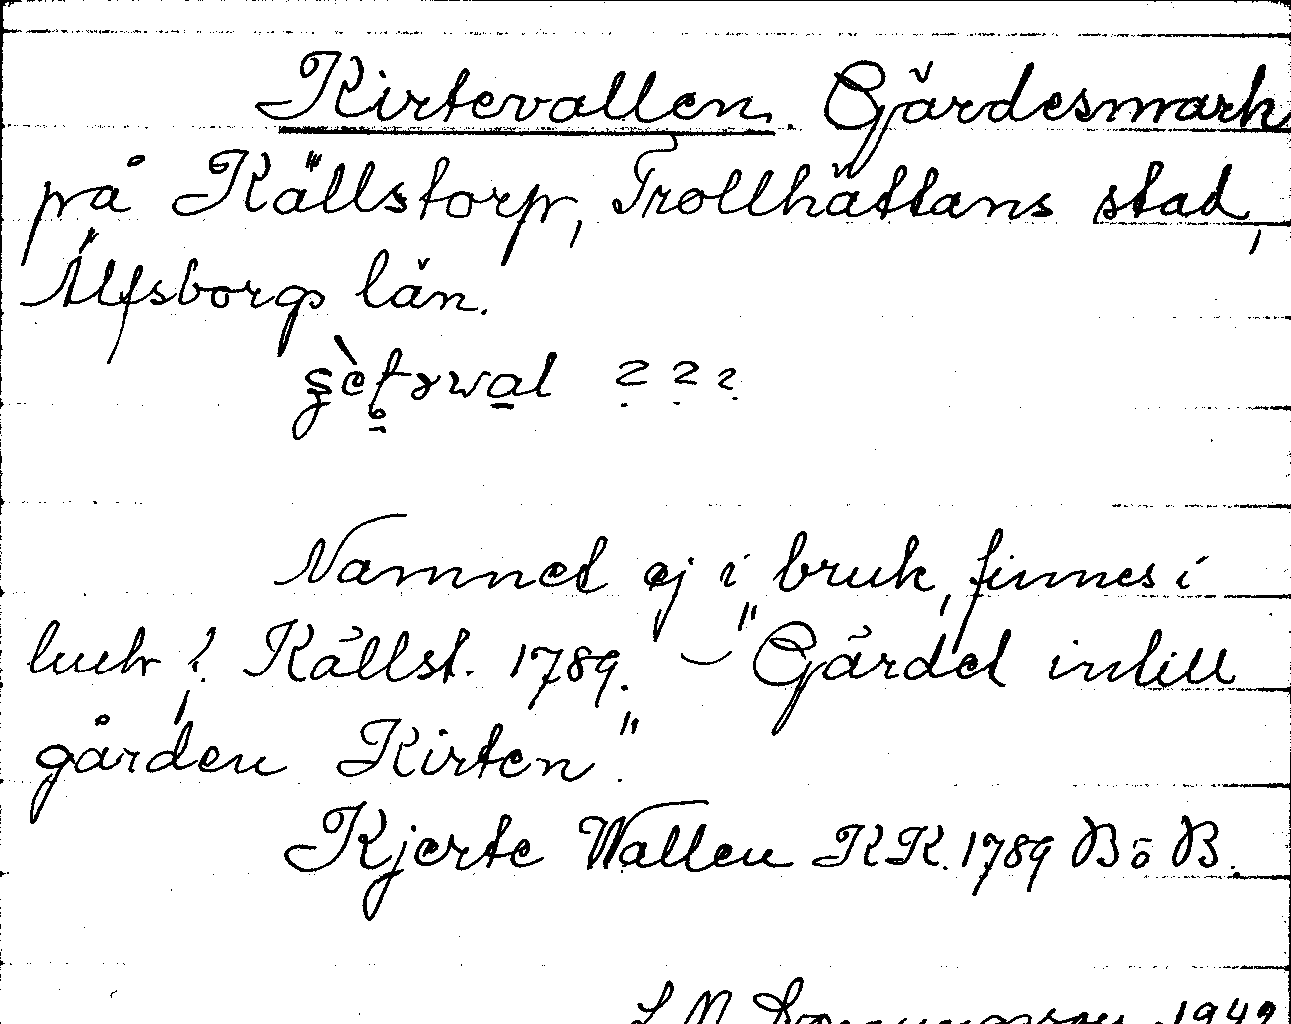 Kirtevallen. Gärdesmark
på Källstorp, Trollhättans stad,
Älfsborgs län.
? ? ?
Namnet ej i bruk, finnes i
Källst. 1789. – "Gärdet intill
gården Kirten".
Kjerte Wallen KK. 1789 B o B.
1942